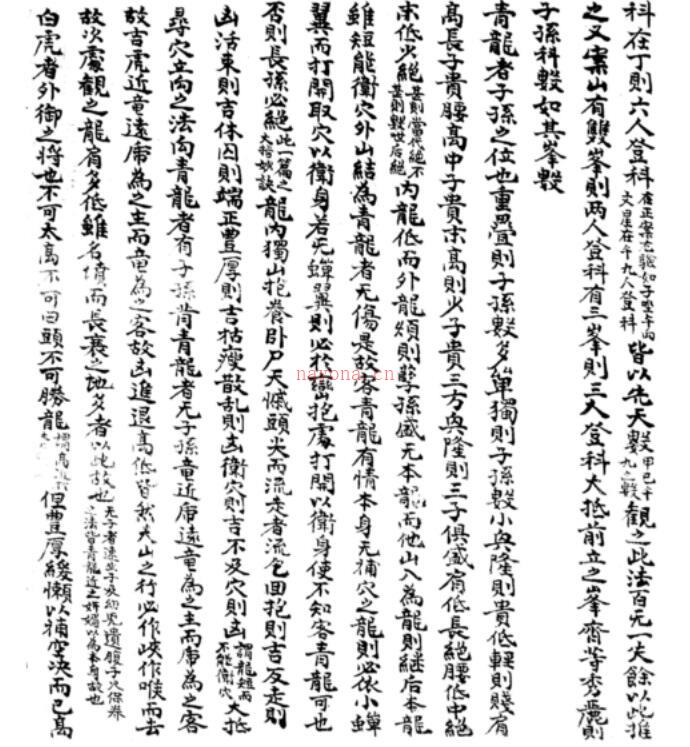 科在丁則六人登科在正案尤驗如子坐午向文星在午九人登科皆以先天數甲己子午九之數觀之此法百无一失餘以此推
之又案山有雙峯則两人登科有三峯則三人登科大抵前立之峯齊等秀麗則
子孫科數如其峯數
青龍者子孫之位也重疊則子孫數多单獨則子孫數小興隆則貴低輕則賤肩
高長子貴腰高中子貴末高則少子貴三方興隆則三子俱盛肩低長絕腰低中絕
末低少絕甚則當代絕不甚則數世后絕內龍低而外龍
則
孫盛无本龍而他山入為龍則継后本龍
雖短能衛穴外山結為青龍者无傷是故客青龍有情本身无補穴之龍則必依小蟬
翼而打開取穴以衛身若无蟬翼則必於巒抱處打開以衛身使不知客青龍可也
否則長孫必絕此一篇之大捨妙訣龍內獨山抱養卧尸天憾頭尖而流走者流包回抱則吉反走則
凶活東則吉休囚則端正豊厚則吉枯瘦散乱則凶衛穴則吉不及穴則凶謂龍短而不能衛穴大抵
尋穴立向之法向青龍者有子孫背青龍者无子孫竜近虎遠竜為之主而虎為之客
故吉虎近竜遠虎為之主而竜為之客故凶進退高低皆然夫山之行必作峽作喉而去
故次處觀之龍肩多低雖名墳而長衰之地多者以此故也无子者速生子及幼兒遺腹子
保養之法皆青龍近之
以為本身故也
白虎者外御之将也不可太高不可回頭不可勝龍謂高
但豊厚緩懶以補空決而已高
narona.cn